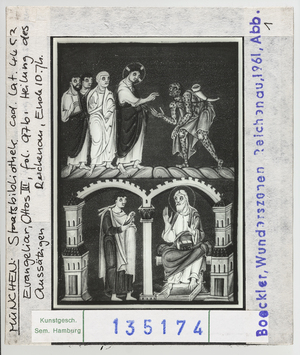 MÜNCHEN: Staatsbibliothek cod. lat. 4453
Evangeliar Ottos III fol. 97b: Heilung des
Aussätzigen
Reichenau, Ende 10. Jh.
Boeckler, Wunderszenen Reichenau, 1961, Abb.
1
Kunstgesch.
Sem. Hamburg
135174